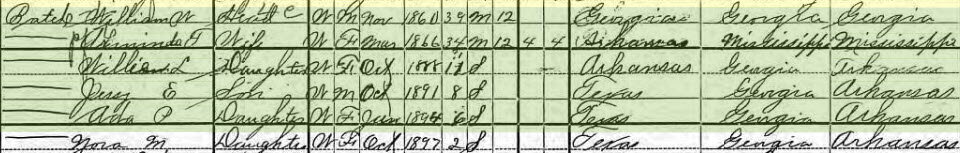 Bates William W Head W M Nov 1860 39 M 12 Georgia Georgia Georgia
F Wife W F Mar 1866 34 M 12 4 4 Arkansas Mississippi Mississippi
L Daughter W F Oct 1888 11 S Arkansas Georgia Arkansas
E Son W M Oct 1891 8 S Texas Georgia Arkansas
Ada P Daughter W F Jun 1894 S Texas Georgia Arkansas
Nora M Daughter W F Oct 1897 2 S Texas Georgia Arkansas